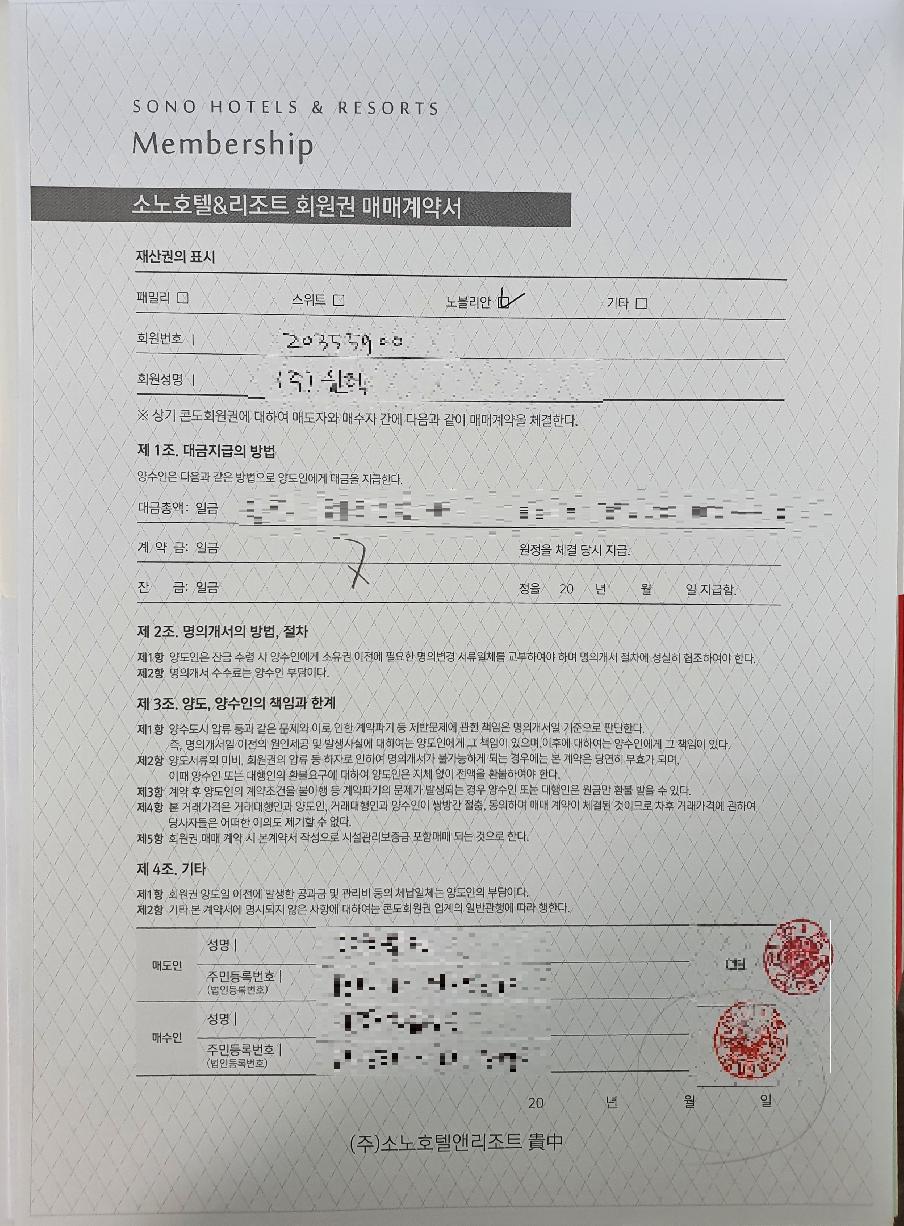 SONO HOTELS & RESORTS
Membership
소노호텔&리조트 회원권 매매계약서
재산권의 표시
패밀리 □ 스위트 □ 노블리안 ☑ 기타 □
회원번호 |
회원성명 | (주)
※ 상기 콘도회원권에 대하여 매도자와 매수자 간에 다음과 같이 매매계약을 체결한다.
제 1조. 대금지급의 방법
양수인은 다음과 같은 방법으로 양도인에게 대금을 지급한다.
대금총액: 일금
계 약 금: 일금 원정을 체결 당시 지급.
잔 금: 일금 정을 20 년 월 일 지급함.
제 2조. 명의개서의 방법, 절차
제1항 양도인은 잔금 수령 시 양수인에게 소유권 이전에 필요한 명의변경 서류일체를 교부하여야 하며 명의개서 절차에 성실히 협조하여야 한다.
제2항 명의개서 수수료는 양수인 부담이다.
제 3조. 양도, 양수인의 책임과 한계
제1항 양수도시 압류 등과 같은 문제와 이로 인한 계약파기 등 제반문제에 관한 책임은 명의개서일 기준으로 판단한다.
즉, 명의개서일 이전의 원인제공 및 발생사실에 대하여는 양도인에게 그 책임이 있으며, 이후에 대하여는 양수인에게 그 책임이 있다.
제2항 양도서류의 미비, 회원권의 압류 등 하자로 인하여 명의개서가 불가능하게 되는 경우에는 본 계약은 당연히 무효가 되며,
이때 양수인 또는 대행인의 환불요구에 대하여 양도인은 지체 없이 전액을 환불하여야 한다.
제3항 계약 후 양도인의 계약조건을 불이행 등 계약파기의 문제가 발생되는 경우 양수인 또는 대행인은 원금만 환불 받을 수 있다.
제4항 본 거래가격은 거래대행인과 양도인, 거래대행인과 양수인이 쌍방간 절충, 동의하며 매매 계약이 체결된 것이므로 차후 거래가격에 관하여
당사자들은 어떠한 이의도 제기할 수 없다.
제5항 회원권 매매 계약 시 본계약서 작성으로 시설관리보증금 포함매매 되는 것으로 한다.
제 4조. 기타
제1항 회원권 양도일 이전에 발생한 공과금 및 관리비 등의 체납일체는 양도인의 부담이다.
제2항 기타 본 계약서에 명시되지 않은 사항에 대하여는 콘도회원권 업계의 일반관행에 따라 행한다.
매도인 성명 |
주민등록번호 |
(법인등록번호)
매수인 성명 |
주민등록번호 |
(법인등록번호)
20 년 월 일
(주)소노호텔앤리조트 貴中